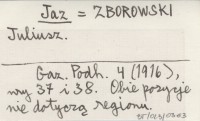 Jaz = ZBOROWSKI
Juliusz.
Gaz. Podh. 4 (1916),
nry 37 i 38. Obie pozycje
nie dotyczą regionu.